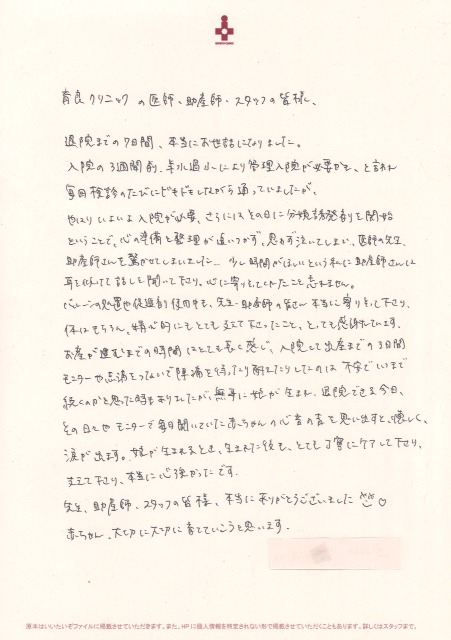 育良クリニックの医師、助産師、スタッフの皆様、
退院までの7日間、本当にお世話になりました。
入院の3週間前、羊水過小により管理入院が必要かも、と言われ
毎回検診のたびにドキドキしながら通っていましたが、
やはりいよいよ入院が必要、さらにはその日に分娩誘発剤を開始
ということで、心の準備と整理が追いつかず、思わず泣いてしまい、医師の先生、
助産師さんを驚かせてしまいました… 少し時間がほしいという私に助産師さんは
耳を傾けて話しを聞いて下り、心に寄りそってくれたこと忘れません。
バルーンの処置や促進剤使用中も、先生・助産師の皆さん本当に寄りそって下り、
体はもちろん、精神的にもとても支えて下さったこと、とても感謝しています。
お産が進むまでの時間はとても長く感じ、入院して出産までの3日間
モニターや点滴をつないで陣痛を待ったり耐えたりしたのは不安でいつまで
続くのかと思った時もありましたが、無事に娘が生まれ、退院できる今日、
その日々やモニターで毎日聞いていた赤ちゃんの心音の音を思い出すと、懐しく、
涙が出ます。娘が生まれるとき、生まれた後も、とても丁寧にケアして下り、
支えて下り、本当に心強かったです。
先生、助産師、スタッフの皆様、本当にありがとうございました
赤ちゃん、大切に大切に育てていこうと思います。
原本はいいたいぞファイルに掲載させていただきます。また、HPに個人情報を特定されない形で掲載させていただくこともあります。詳しくはスタッフまで。